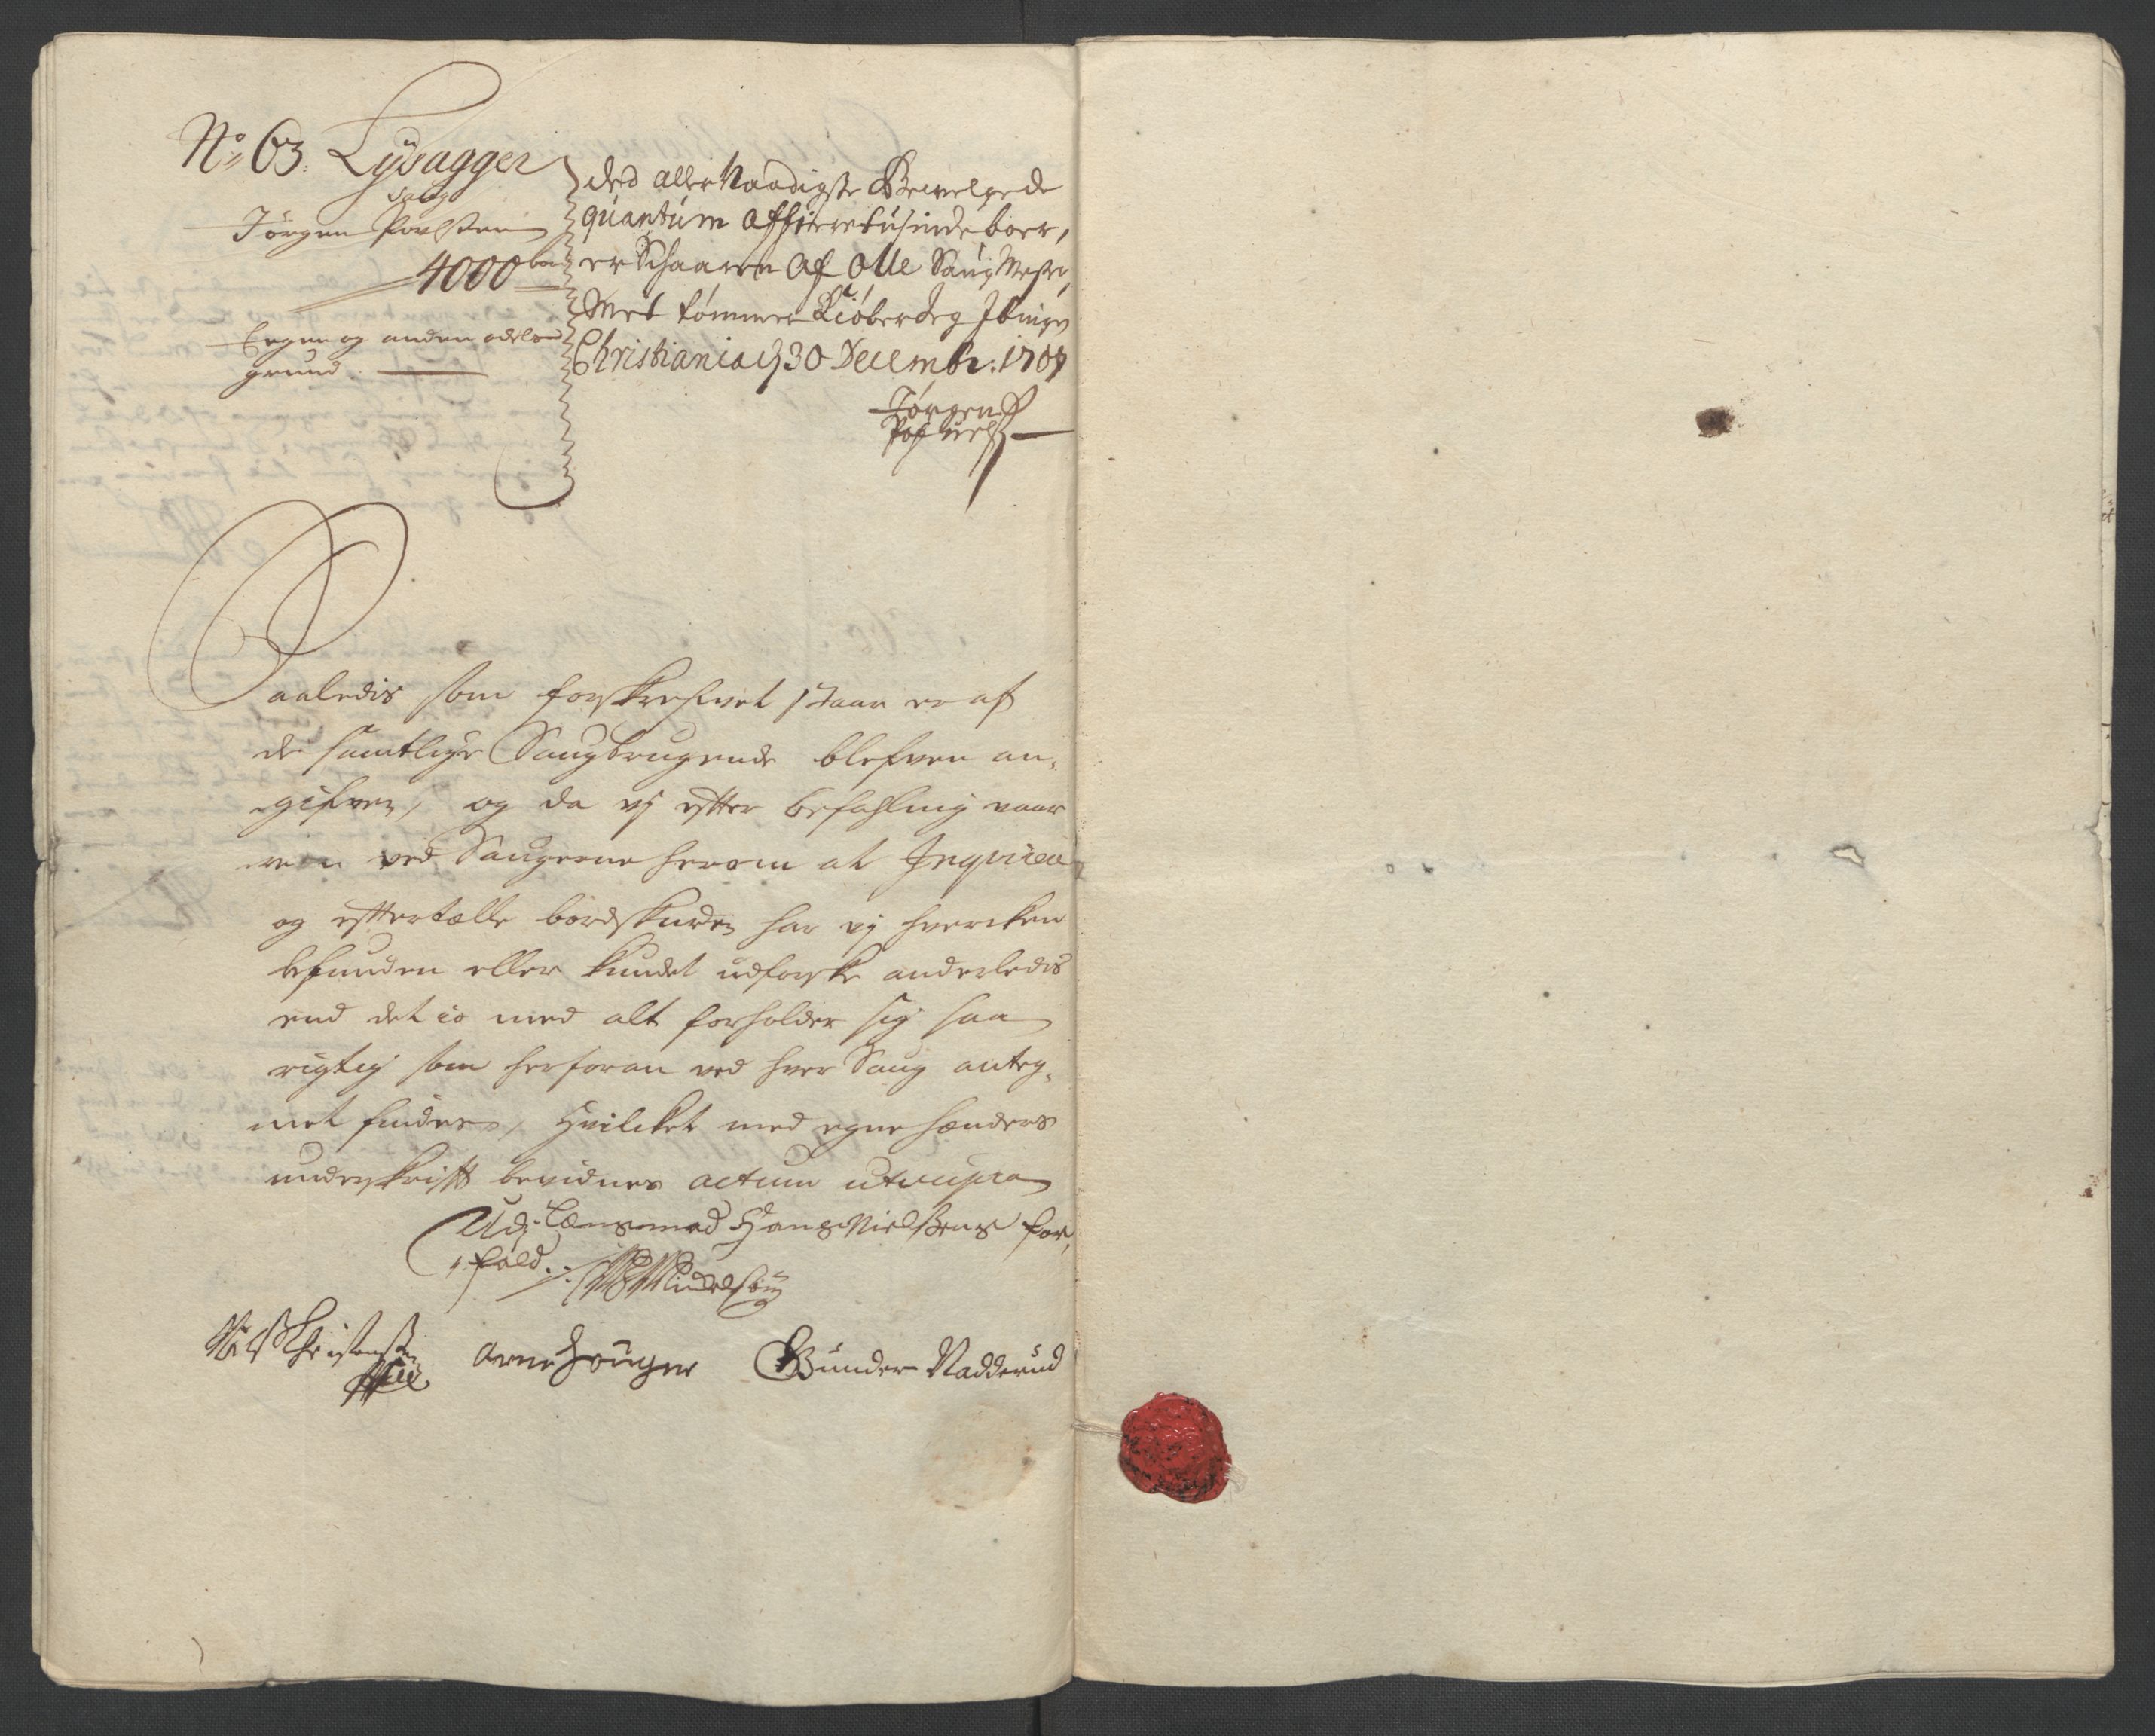 No 63. Lysagger
Saug
Jørgen Povelsen
4000 bor
Eegen og anden odels
grund.
ded aller Naadigste Bewelgede
quantum aff fiirretusinde boer,
er Schaaren Af Olle Saug Mester,
Med tømmer Kiøber Jeg
Christiania d 30 Decembr: 1707
Jørgen
Pofvels
Saaledis som forskrefvet staar er af
de samtlige Saugbrugende blefven an-
gifven, og da vj efter befahling vaar
ved Saugerne herom at Inqvirere
og eftertælle bordskurden har vj hvercken
befunden eller kundet udforske anderledis
end det io med alt forholder sig saa
rigtig som herforan ved hver Saug anteg-
net findes, Hvilcket med egne hænders
underskrift bevidnes actum utsupra
Udj Lensmand Hans Nielsens for,
fald.
Nils Christensen
Arne Houger Gunder Nadderud